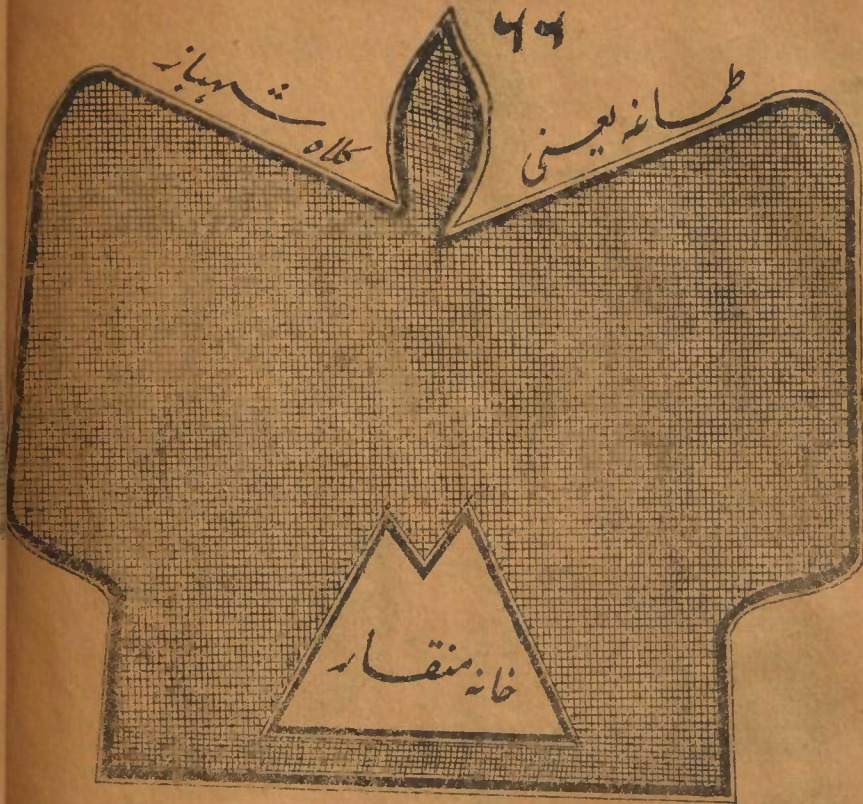 ۶۶
طماغه یعنی
کلاه شہباز
خانہ منقار